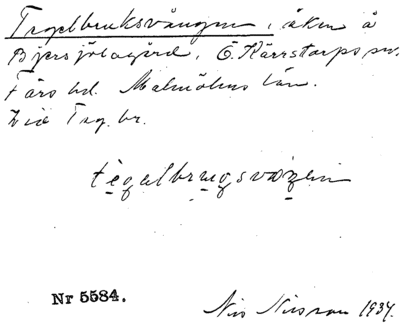 Tegelbruksvången, åker å
Bjersjölagård, Ö. Kärrstorps sn.
Färs hd. Malmöhus län.
Vid Teg. br.
tegalbrugsvaŋein
Nr 5584.
Nils Nilsson 1934.